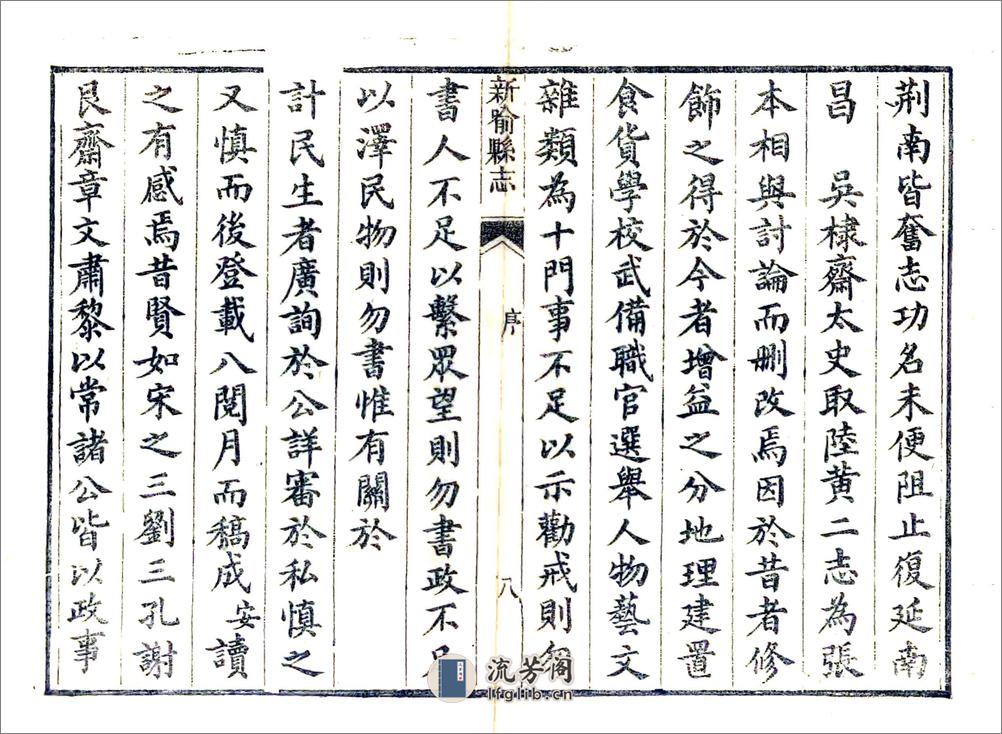 荆南皆奮志功名未便阻止復延南
昌　吳棣齋太史取陸黄二志為張
本相與討論而刪改焉因於昔者修
飾之得於今者增益之分地理建置
食貨學校武備職官選舉人物藝文
雜類為十門事不足以示勸戒則勿
新喻縣志
序
八
書人不足以繫眾望則勿書政不足
以澤民物則勿書惟有關於
計民生者廣詢於公詳審於私慎之
又慎而後登載八閱月而稿成安讀
之有感焉昔賢如宋之三劉三孔謝
艮齋章文肅黎以常諸公皆以政事
流芳阁
lfglib.cn